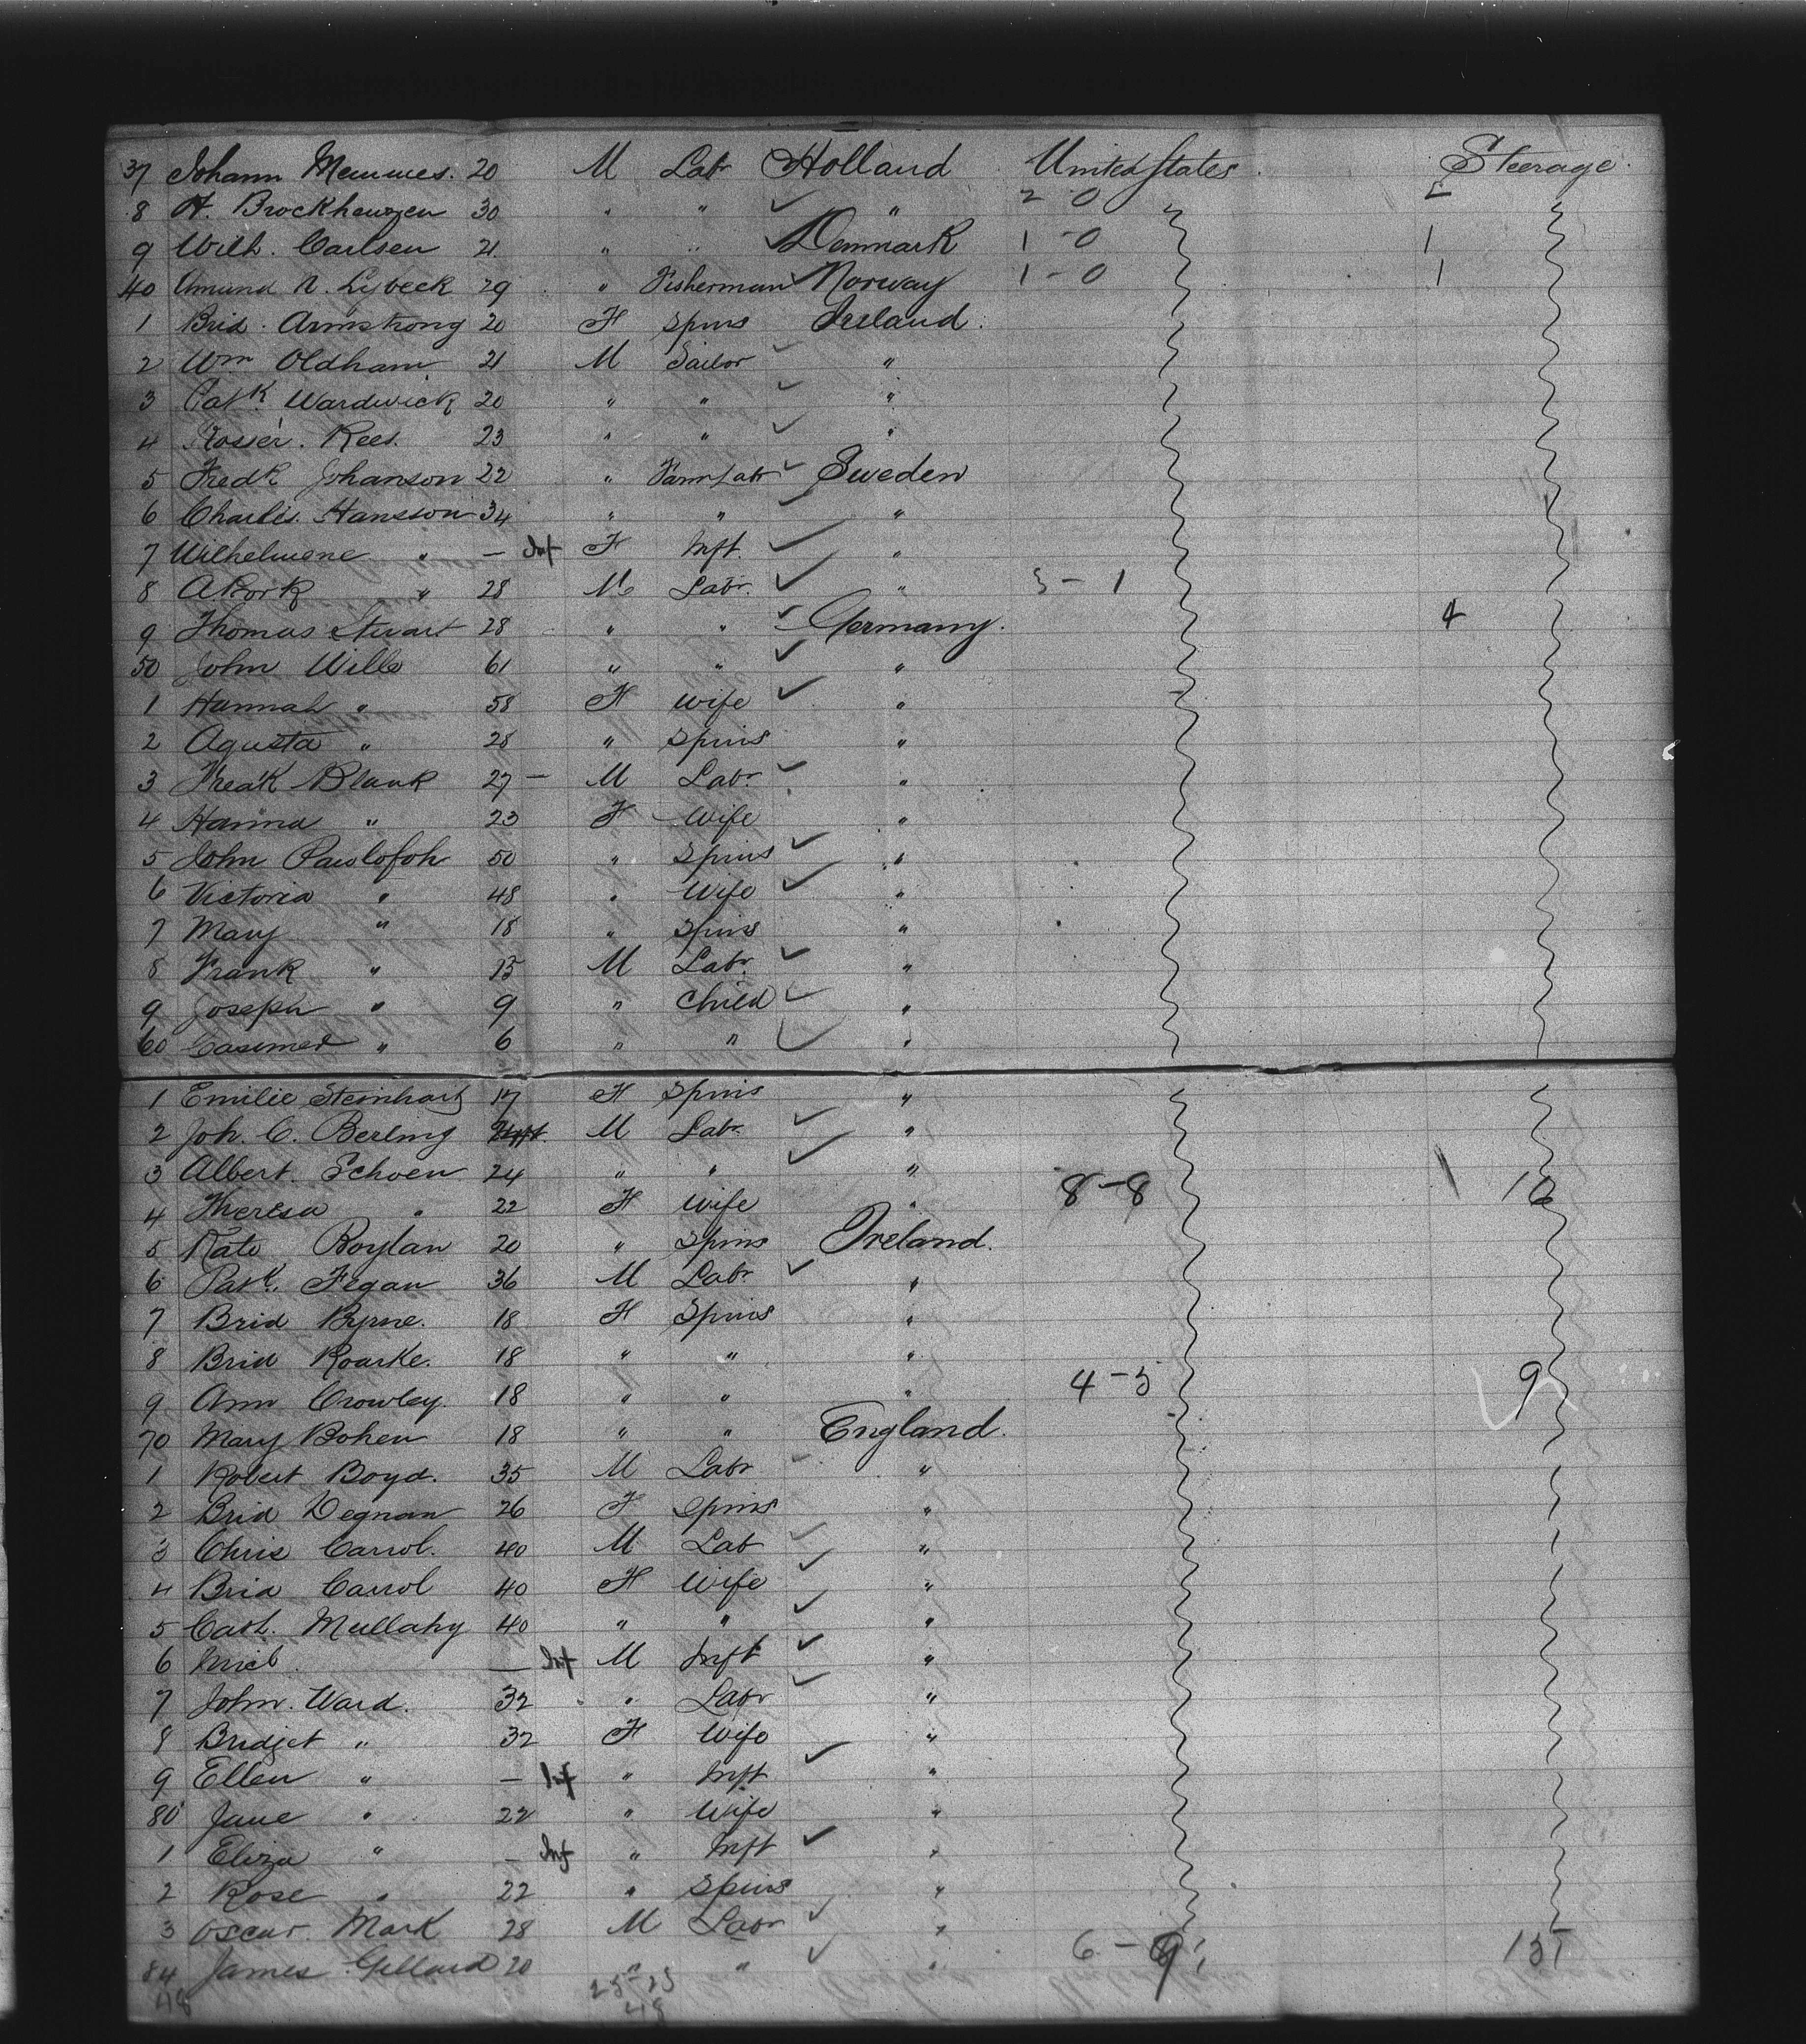 37 Johann Memmes. 20 M Labr Holland United States Steerage.
8 H. Brockheuzen 30 " " " 2 - 0 2
9 Wilh. Carlsen 21 " " Denmark 1 - 0 1
40 Amund N. Lybeck 29 " Fisherman Norway 1 - 0 1
1 Brid. Armstrong 20 F Spins Ireland.
2 Wm Oldham 21 M Sailor "
3 Patk. Wardwick 20 " " "
4 Rosser. Rees. 23 " " "
5 Fredk Johanson 22 " Farm Labr Sweden
6 Charles Hansson 34 " " "
7 Wilhelmene " — Inf F Inft. "
8 " 28 M Labr. " 3 - 1
9 Thomas Stuart 28 " " Germany. 4
50 John Wills 61 " " "
1 Hannah " 58 F Wife "
2 Agusta " 28 " Spins "
3 Fredk Blank 27 — M Labr. "
4 Hanna " 23 F Wife "
5 John Pawlofoh 50 " Spins "
6 Victoria " 48 " Wife "
7 Mary " 18 " Spins "
8 Frank " 13 M Labr. "
9 Joseph " 9 " Child "
60 Casimed " 6 " " "
1 Emilie Steinhart 17 F Spins "
2 Joh. C. Berling M Labr. "
3 Albert. Schoen 24 " " "
4 Theresa " 22 F Wife " 8 - 8 16
5 Kate Boylan 20 " Spins Ireland.
6 Patk. Fegan 36 M Labr "
7 Brid Byrne. 18 F Spins "
8 Brid Roarke. 18 " " "
9 Ann Crowley. 18 " " " 4 - 5 9
70 Mary Bohen 18 " " England.
1 Robert Boyd. 35 M Labr "
2 Brid Degnan 26 F Spins "
3 Chris Carrol. 40 M Lab "
4 Brid Carrol 40 F Wife "
5 Cath. Mullahy 40 " " "
6 Mich. — Inf M Inft "
7 John. Ward. 32 " Labr "
8 Bridget " 32 F Wife "
9 Ellen " — Inf " Inft "
80 Jane " 22 " Wife "
1 Eliza " — Inf " Inft "
2 Rose " 22 " Spins "
3 Oscar. Mark 28 M Labr "
84 James Gillard 20 " " " 6 - 9 15
48 25-23
48